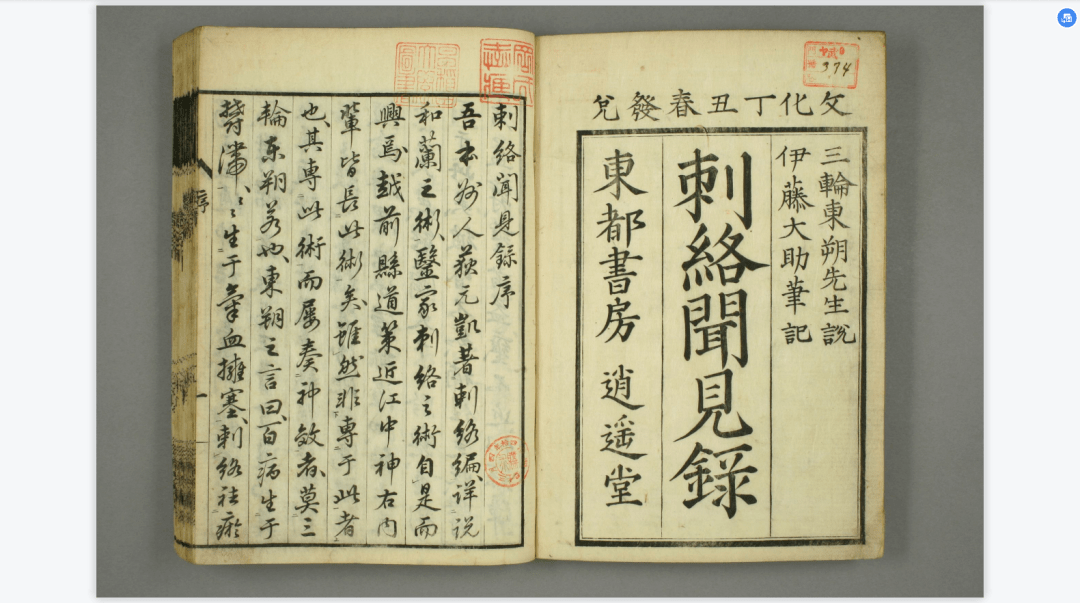 文化丁丑春發兌
三輪東朔先生説
伊藤大助筆記
刺絡聞見錄
東都書房 逍遥堂
374
刺絡聞見録序
吾本州人荻元凱著刺絡編詳説
和蘭之術毉家刺絡之術自是而
興焉越前縣道策近江中神右内
輩皆長此術矣雖然非專于此者
也其專此術而屢奏神效者莫三
輪東朔若也東朔之言曰百病生于
欝滯々々生于氣血擁塞刺絡祛瘀
序
一